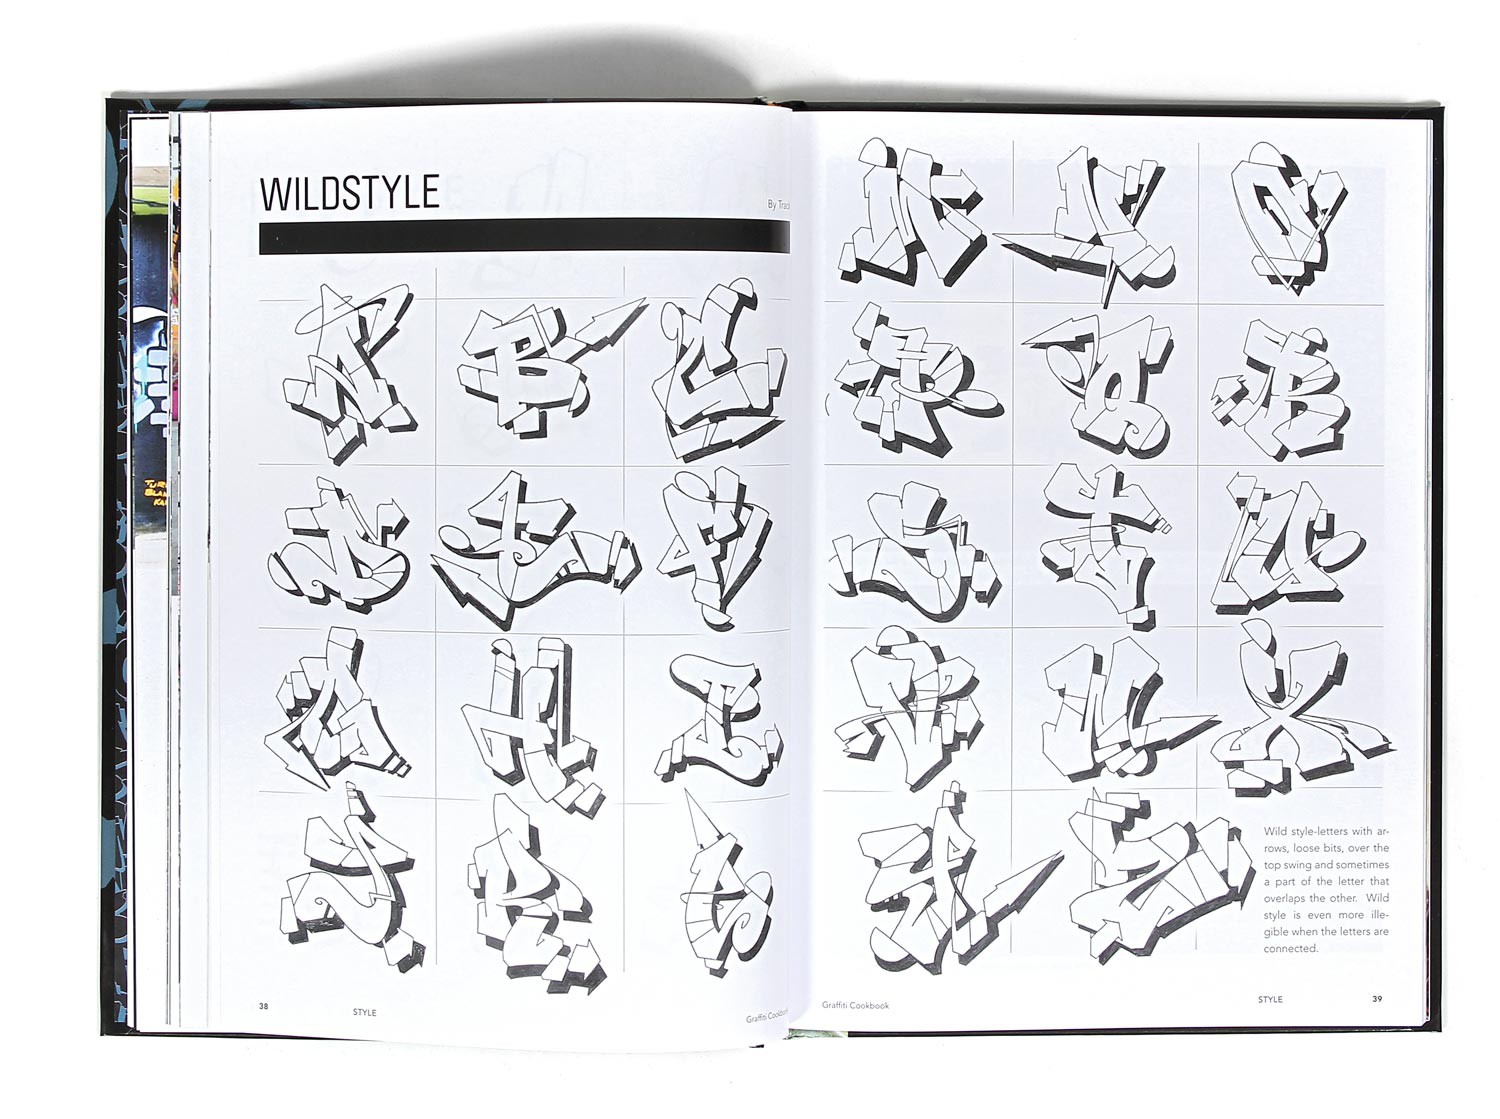 WILDSTYLE
By
A B C
D E F
G H I
J K L
M N O
P Q R
S T U
V W X
Y Z
Wild style-letters with ar-
rows, loose bits, over the
top swing and sometimes
a part of the letter that
overlaps the other. Wild
style is even more ille-
gible when the letters are
connected.
38
STYLE
Graffiti
Graffiti Cookbook
STYLE
39